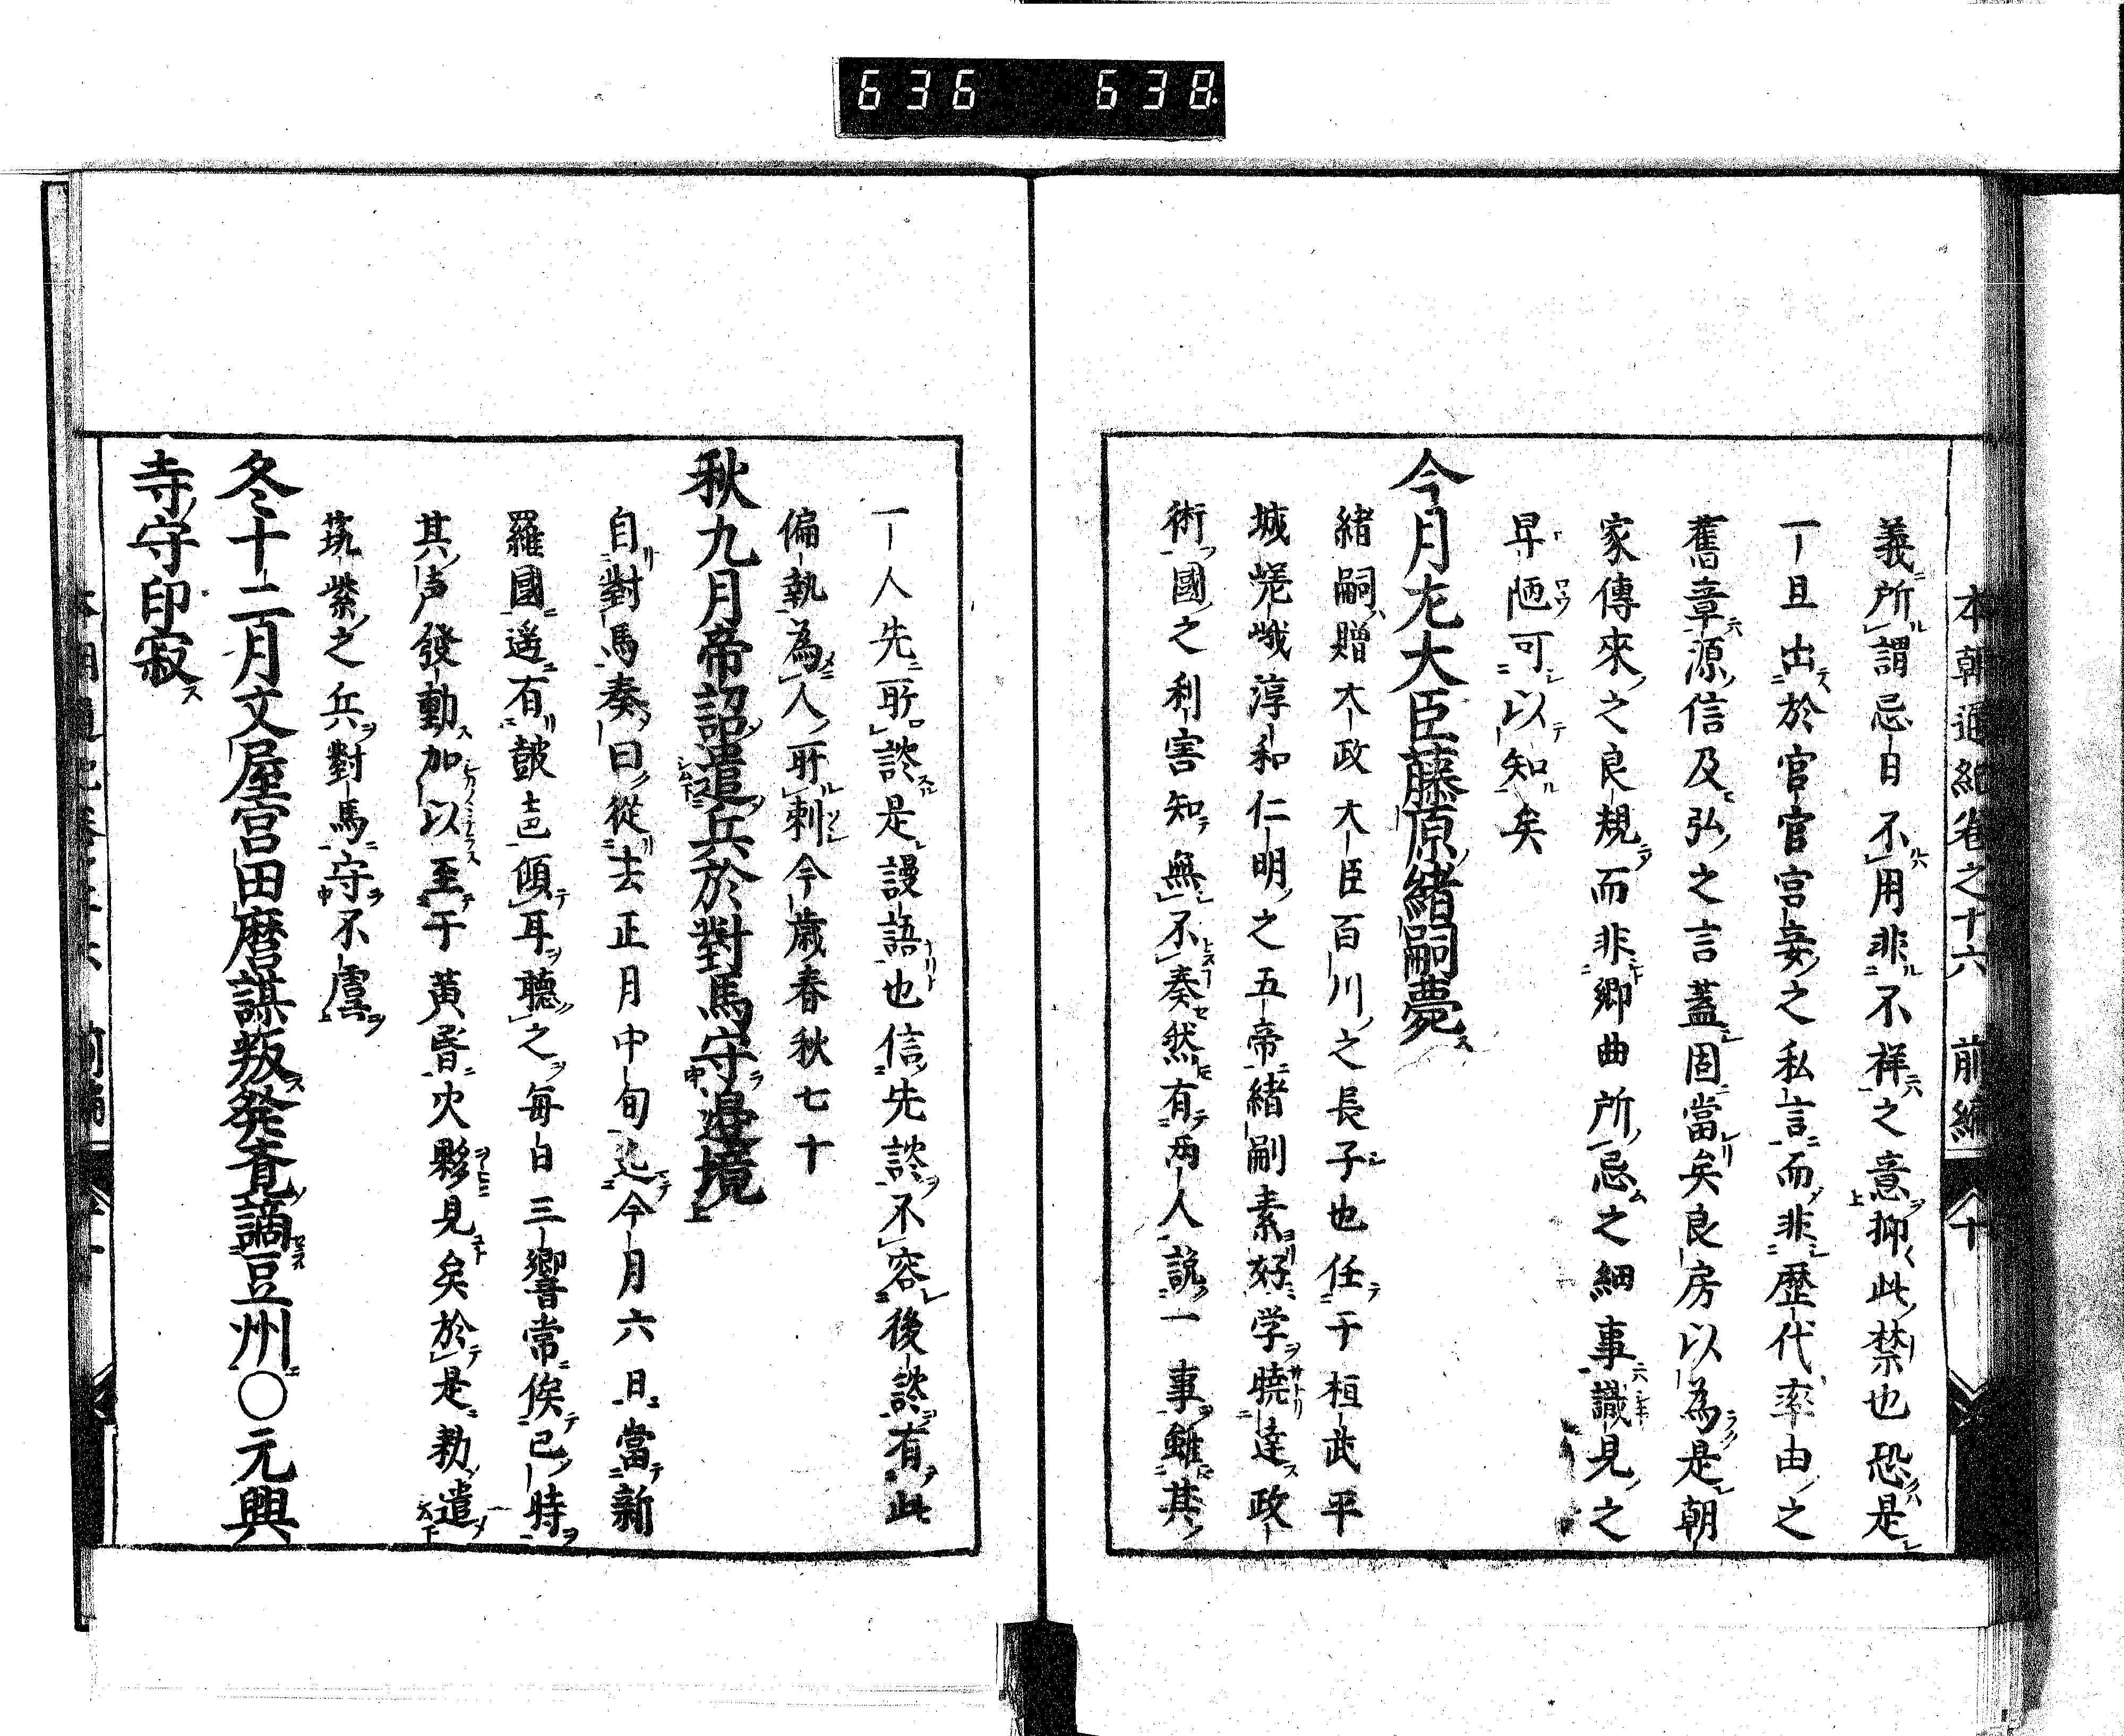 636 638
本朝通紀卷之十六 前編 十
義所謂忌日不用非不祥之意抑此禁也恐是
一旦出於官官宮妾之私言而非歷代率由之
舊章源信及弘之言蓋固當矣良房以為是朝
家傳來之良規而非鄉曲所忌之細事識見之
卑陋可以知矣
今月左大臣藤原緒嗣薨
緒嗣贈太政大臣百川之長子也任于桓武平
城嵯峨淳和仁明之五帝緒嗣素好学曉達政
術國之利害知無不奏然有兩人說一事雖其
一人先所談是謾語也信先談不容後談有此
偏執為人所刺今歲春秋七十
秋九月帝詔遣兵於對馬守邊境
自對馬奏曰從去正月中旬迄今月六日當新
羅國遥有鼓声傾耳聽之每日三響常俟已時
其声發動加以至于黃昏火夥見矣於是勅遣
筑紫之兵對馬守不虞
冬十二月文屋宮田麿謀叛発覚謫豆州○元興
寺守印寂